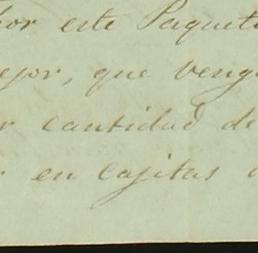 por este Paquet
ejor, que veng
r cantidad de
en cajitas